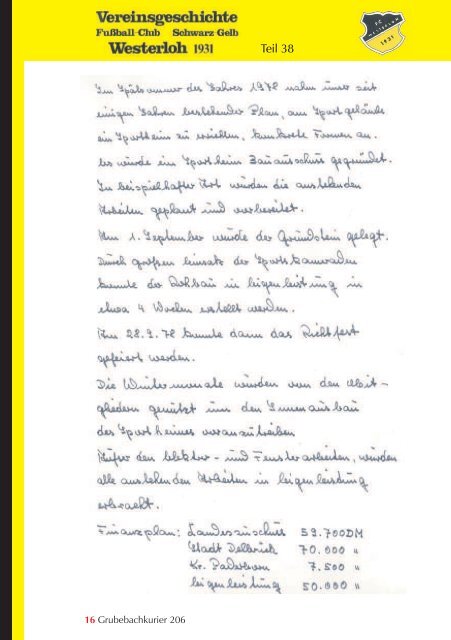 Vereinsgeschichte
Fußball-Club Schwarz Gelb
Westerloh 1931 Teil 38
FC
WESTERLOH
1931
Im Spätsommer des Jahres 1978 nahm unser seit
einigen Jahren bestehender Plan, am Sportgelände
ein Sportheim zu erstellen, konkrete Formen an.
Es wurde ein Sportheim Bauausschuss gegründet.
In beispielhafter Art wurden die anstehenden
Arbeiten geplant und vorbereitet.
Am 1. September wurde der Grundstein gelegt.
Durch großen Einsatz der Sportskameraden
konnte der Rohbau in Eigenleistung in
etwa 4 Wochen erstellt werden.
Am 28.9.78 konnte dann das Richtfest
gefeiert werden.
Die Wintermonate wurden von den Mit-
gliedern genützt um den Innenausbau
des Sportheimes voranzutreiben
Außer den Elektro- und Fensterarbeiten, wurden
alle anstehenden Arbeiten in Eigenleistung
erbracht.
Finanzplan: Landeszuschuss 59.700DM
Stadt Delbrück 70.000 "
Kr. Paderborn 7.500 "
Eigenleistung 50.000 "
16 Grubebachkurier 206